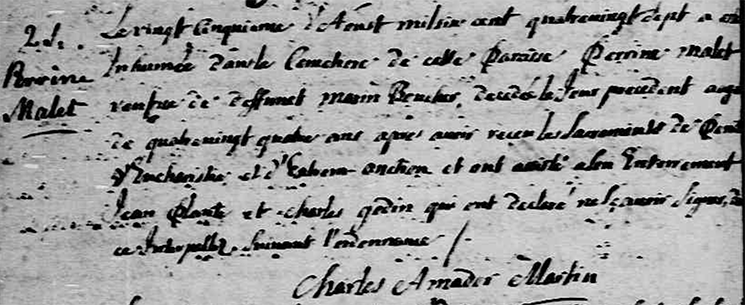 Le vingt cinquieme d'Aoust mil six cent quatre vingt sept a esté
Inhumée dans le Cimetiere de cette Paroisse Perrine Malet
Perrine
Malet
veufve de deffunct Marin Boucher, decedée le Jour precedent aagée
de quatrevingt quatre ans apres avoir receu les Sacrements de Penit
d'Eucharistie et d'Extrem-onction et ont assisté a son Enterrement
Jean Plante et charles godin qui ont declaré ne sçavoir signer, de
ce Interpellez suivant l'ordonnance /
Charles Amador Martin